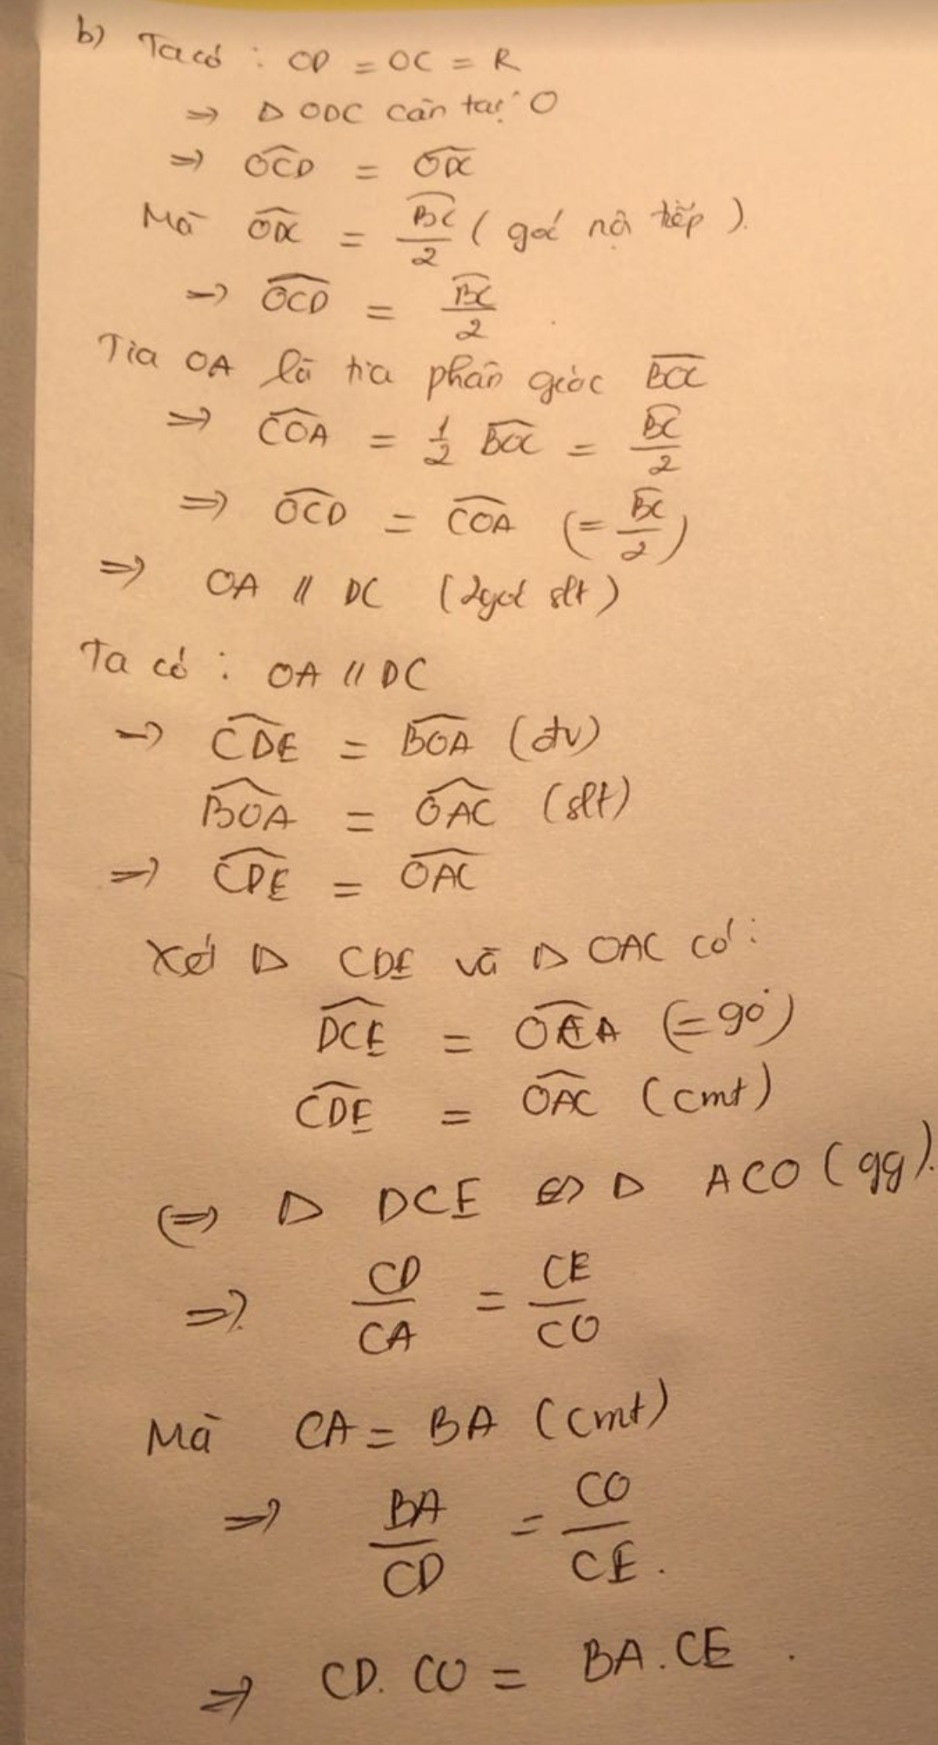 b) Ta có : OD = OC = R
=> Δ ODC cân tại O
=> OCD = ODC
Mà ODC = BC/2 ( góc nội tiếp ).
=> OCD = BC/2
Tia OA là tia phân giác BOC
=> COA = 1/2 BOC = BC/2
=> OCD = COA (= BC/2)
=> OA // DC (2góc slt)
Ta có : OA // DC
=> CDE = BOA (đv)
BOA = OAC (slt)
=> CDE = OAC
Xét Δ CDE và Δ OAC có :
DCE = OCA (= 90°)
CDE = OAC (cmt)
(=>) Δ DCE ∽ Δ ACO (gg).
=> CD/CA = CE/CO
Mà CA = BA (cmt)
=> BA/CD = CO/CE .
=> CD. CO = BA. CE .